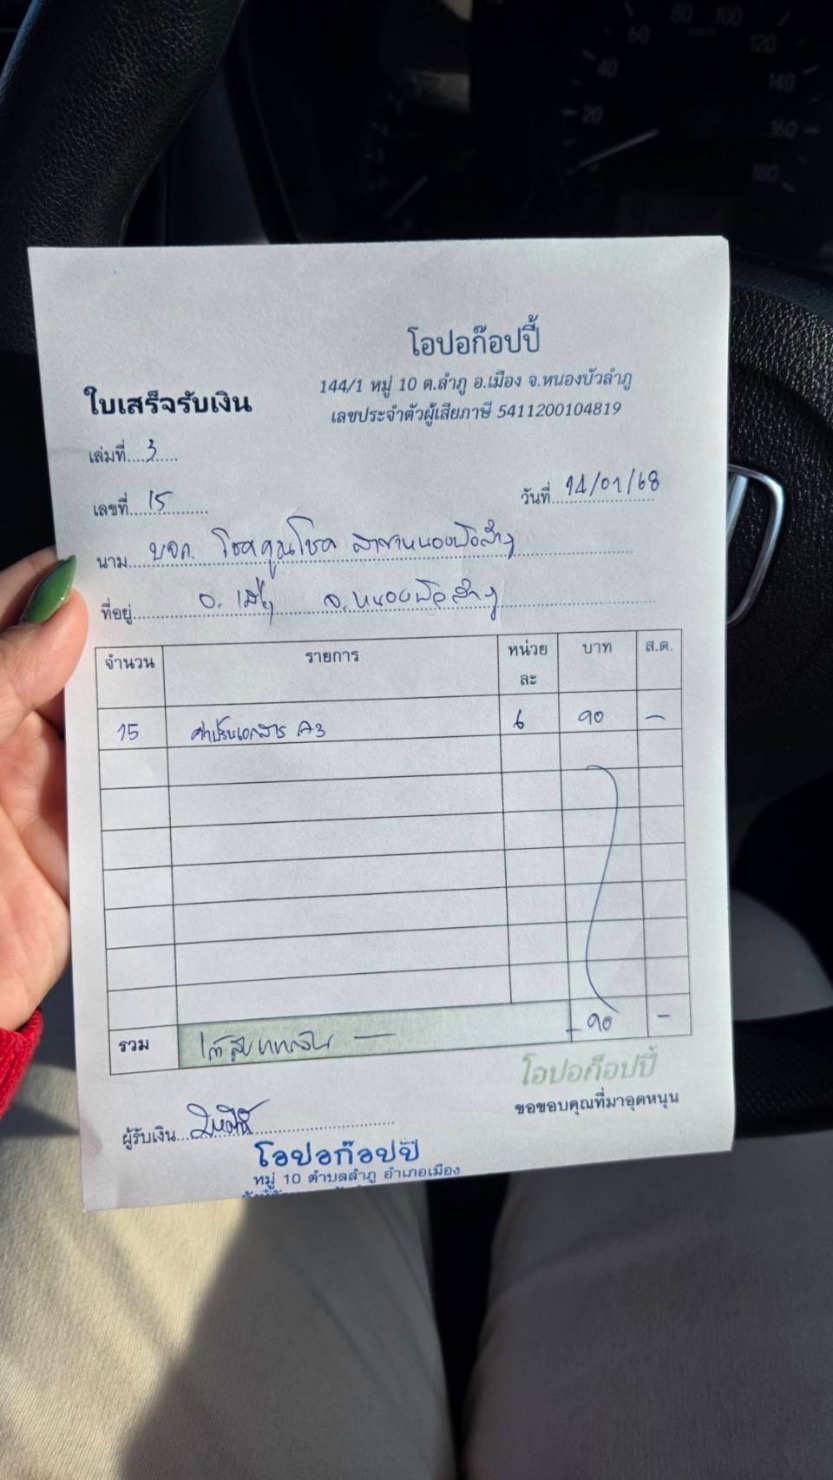 โอปอก๊อปปี้
144/1 หมู่ 10 ต.ลำภู อ.เมือง จ.หนองบัวลำภู
ใบเสร็จรับเงิน
เลขประจำตัวผู้เสียภาษี 5411200104819
เล่มที่....3.....
เลขที่...15........
วันที่..14/01/68
นาม...บจก. โชคคูณโชค สาขาหนองบัวลำภู
ที่อยู่.......อ.เมือง จ.หนองบัวลำภู
จำนวน รายการ หน่วยละ บาท ส.ต.
15 ค่าปริ้นเอกสาร A3 6 90 –
รวม เก้าสิบบาทถ้วน — 90 –
โอปอก็อปปี้
ขอขอบคุณที่มาอุดหนุน
ผู้รับเงิน...
โอปอก๊อปปี้
หมู่ 10 ตำบลลำภู อำเภอเมือง